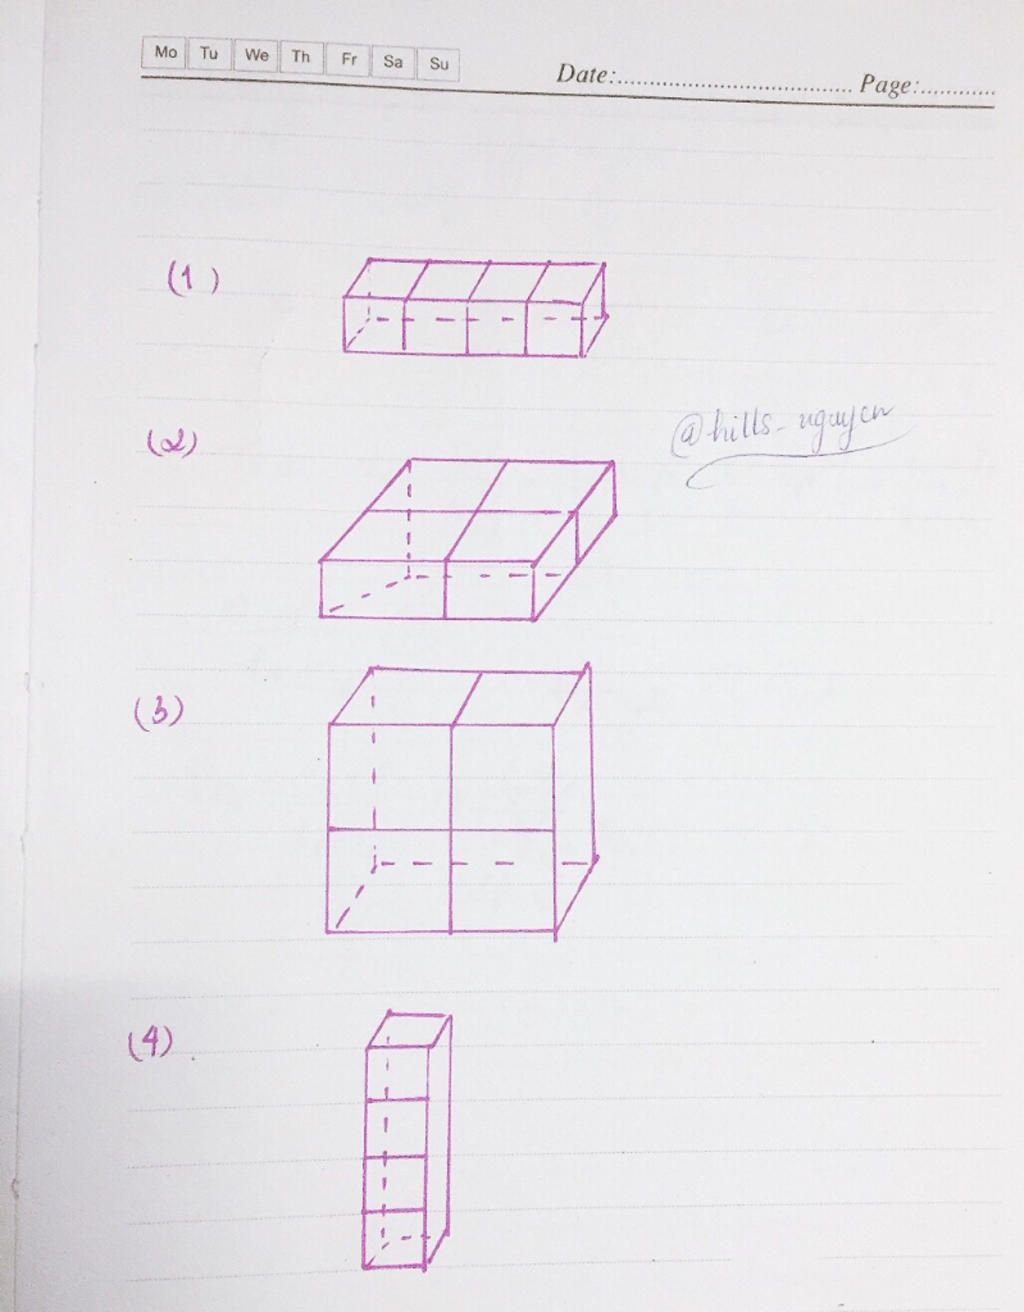 Mo Tu We Th Fr Sa Su
Date:.................................... Page:............
(1)
@hills_nguyen
(2)
(3)
(4)